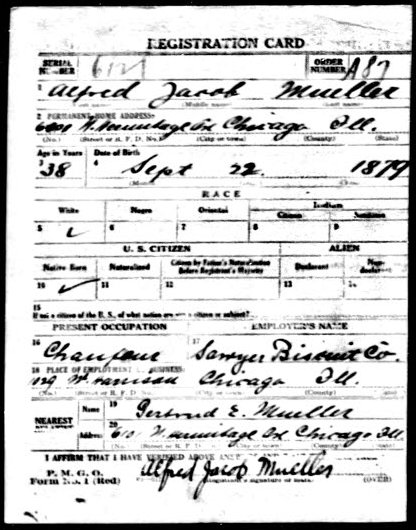 REGISTRATION CARD
SERIAL NUMBER ORDER NUMBER A87
1 Alfred Jacob Mueller
(First name) (Middle name) (Last name)
2 PERMANENT HOME ADDRESS:
N. Hermitage Chicago Ill.
(No.) (Street or R. F. D. No.) (City or town) (County) (State)
Age in Years Date of Birth
3 38 4 Sept 22 1879
RACE
White Negro Oriental Indian
Citizen Noncitizen
5 6 7 8 9
U. S. CITIZEN ALIEN
Native Born Naturalized Citizen by Father's Naturalization Before Registrant's Majority Declarant Non-declarant
10 11 12 13 14
15
If not a citizen of the U. S., of what nation are you a citizen or subject?
PRESENT OCCUPATION EMPLOYER'S NAME
16 Chaufeur 17 Sawyer Biscuit Co.
18 PLACE OF EMPLOYMENT BUSINESS:
Harrison Chicago Ill.
(No.) (Street or R. F. D. No.) (City or town) (County) (State)
NEAREST Name 19 Gertrud E. Mueller
Address 20 N. Hermitage Chicago Ill.
(Street or R. F. D. No.) (City or town) (County) (State)
I AFFIRM THAT I HAVE VERIFIED ABOVE
P. M. G. O.
Form No. 1 (Red) Alfred Jacob Mueller
(Registrant's signature or mark) (OVER)